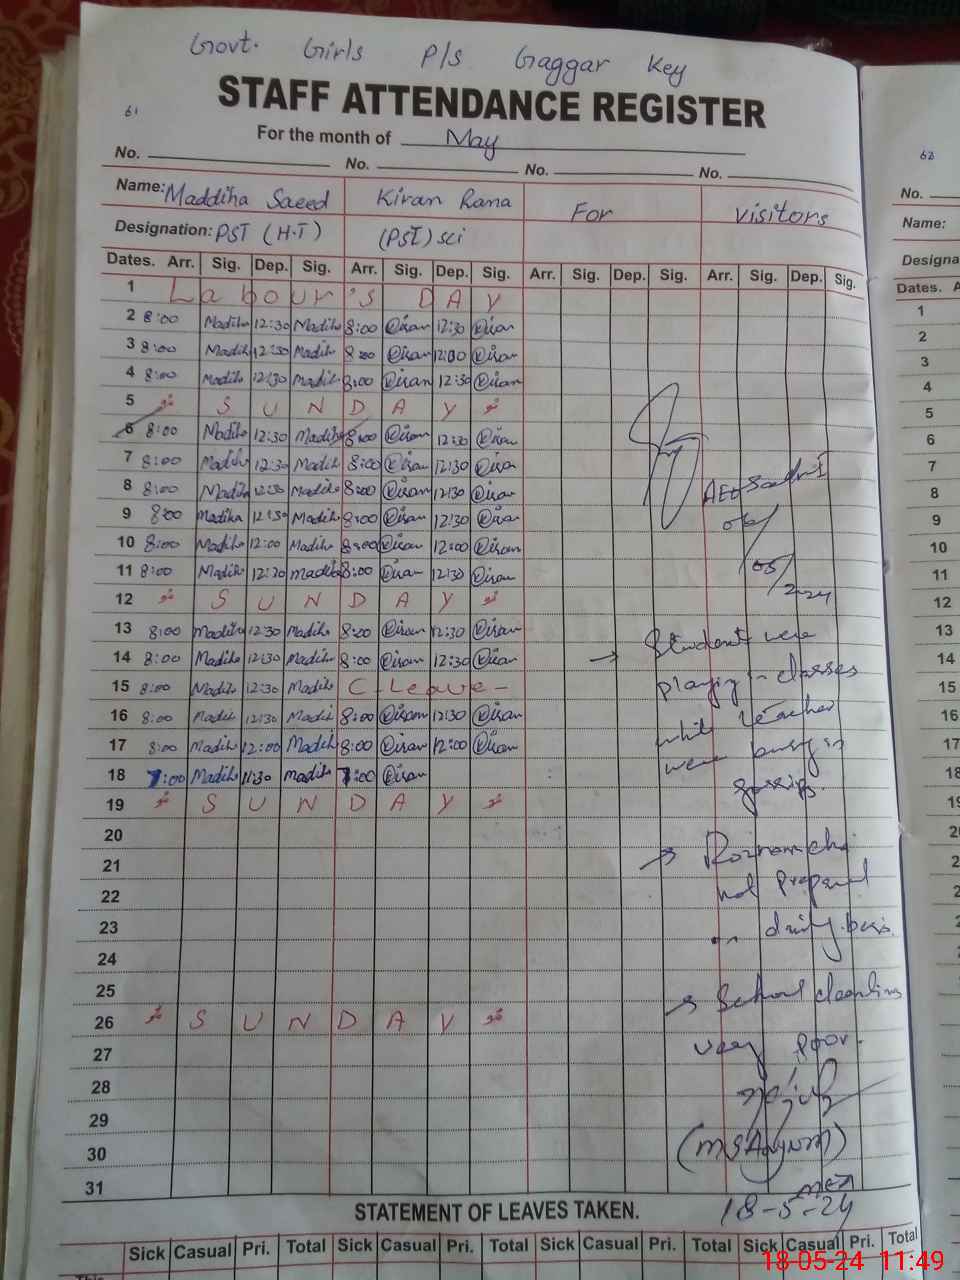 Govt. Girls P/S Gaggar Key
STAFF ATTENDANCE REGISTER
61
For the month of May
No. No. No. No.
Name: Maddiha Saeed Kiran Rana For visitors
Designation: PST (H.T) (PST) sci
Dates. Arr. Sig. Dep. Sig. Arr. Sig. Dep. Sig. Arr. Sig. Dep. Sig. Arr. Sig. Dep. Sig.
1 Labour's DAY
2 8:00 Madiha 12:30 Madiha 8:00 Kiran 12:30 Kiran
3 8:00 Madiha 12:30 Madiha 8:00 Kiran 12:30 Kiran
4 8:00 Madiha 12:30 Madiha 8:00 Kiran 12:30 Kiran
5 SUNDAY
6 8:00 Madiha 12:30 Madiha 8:00 Kiran 12:30 Kiran
7 8:00 Madiha 12:30 Madiha 8:00 Kiran 12:30 Kiran
8 8:00 Madiha 12:30 Madiha 8:00 Kiran 12:30 Kiran
9 8:00 Madiha 12:30 Madiha 8:00 Kiran 12:30 Kiran
10 8:00 Madiha 12:00 Madiha 8:00 Kiran 12:00 Kiran
11 8:00 Madiha 12:30 Madiha 8:00 Kiran 12:30 Kiran
12 SUNDAY
13 8:00 Madiha 12:30 Madiha 8:00 Kiran 12:30 Kiran
14 8:00 Madiha 12:30 Madiha 8:00 Kiran 12:30 Kiran
15 8:00 Madiha 12:30 Madiha C-Leave-
16 8:00 Madiha 12:30 Madiha 8:00 Kiran 12:30 Kiran
17 8:00 Madiha 12:00 Madiha 8:00 Kiran 12:00 Kiran
18 7:00 Madiha 11:30 Madiha 7:00 Kiran
19 SUNDAY
20
21
22
23
24
25
26 SUNDAY
27
28
29
30
31
AEO
06/
05/
2024
→ Students were
playing in classes
while teacher
were busy in
gossip.
→ Roznamcha
not prepared
on daily basis.
→ School cleanliness
very poor.
18-5-24
STATEMENT OF LEAVES TAKEN.
Sick Casual Pri. Total Sick Casual Pri. Total Sick Casual Pri. Total Sick Casual Pri. Total
This
62
No.
Name:
Designa
Dates. A
1
2
3
4
5
6
7
8
9
10
11
12
13
14
15
16
17
18
19
18-05-24 11:49